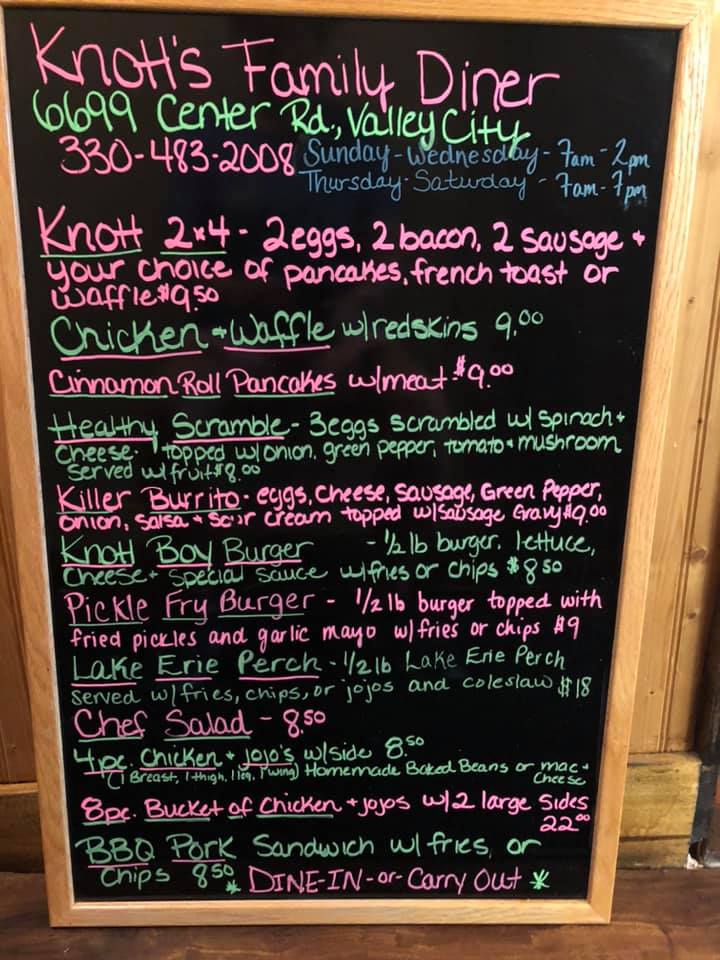 Knott's Family Diner
6699 Center Rd., Valley City
330-483-2008 Sunday-Wednesday- 7am-2pm
Thursday-Saturday - 7am-7pm
Knott 2x4 - 2eggs, 2 bacon, 2 sausage +
your choice of pancakes, french toast or
waffle $9.50
Chicken + Waffle w/redskins 9.00
Cinnamon Roll Pancakes w/meat $9.00
Healthy Scramble - 3eggs scrambled w/ spinach +
cheese. topped w/onion, green pepper, tomato + mushroom
served w/fruit $8.00
Killer Burrito - eggs, cheese, sausage, Green Pepper,
onion, salsa + sour cream topped w/sausage Gravy $9.00
Knott Boy Burger - 1/2 lb burger, lettuce,
cheese + special sauce w/fries or chips $8.50
Pickle Fry Burger - 1/2 lb burger topped with
fried pickles and garlic mayo w/fries or chips $9
Lake Erie Perch - 1/2 lb Lake Erie Perch
served w/fries, chips, or jojos and coleslaw $18
Chef Salad - 8.50
4pc. Chicken + jojo's w/side 8.50
(1 Breast, 1 thigh, 1 leg, 1 wing) Homemade Baked Beans or mac +
cheese
8pc. Bucket of Chicken + jojos w/2 large sides
22.00
BBQ Pork Sandwich w/ fries, or
Chips 8.50
* DINE-IN -or- Carry Out *